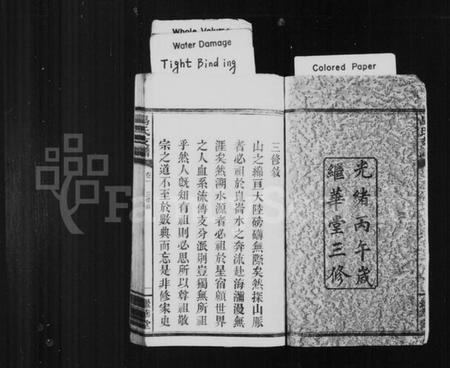 Whole Volume
Water Damage
Tight Binding
Colored Paper
光緒丙午歲
繼華堂三修
三修敘
山之綿亘大陸磅礴無際矣然探山脈
者必祖於崑崙水之奔流赴海瀰漫無
涯矣然溯水源者必祖於星宿顧世界
之人血系流傳支分派別豈獨無所祖
乎然人旣知有祖則必思所以尊祖敬
宗之道不至於數典而忘是非修家史